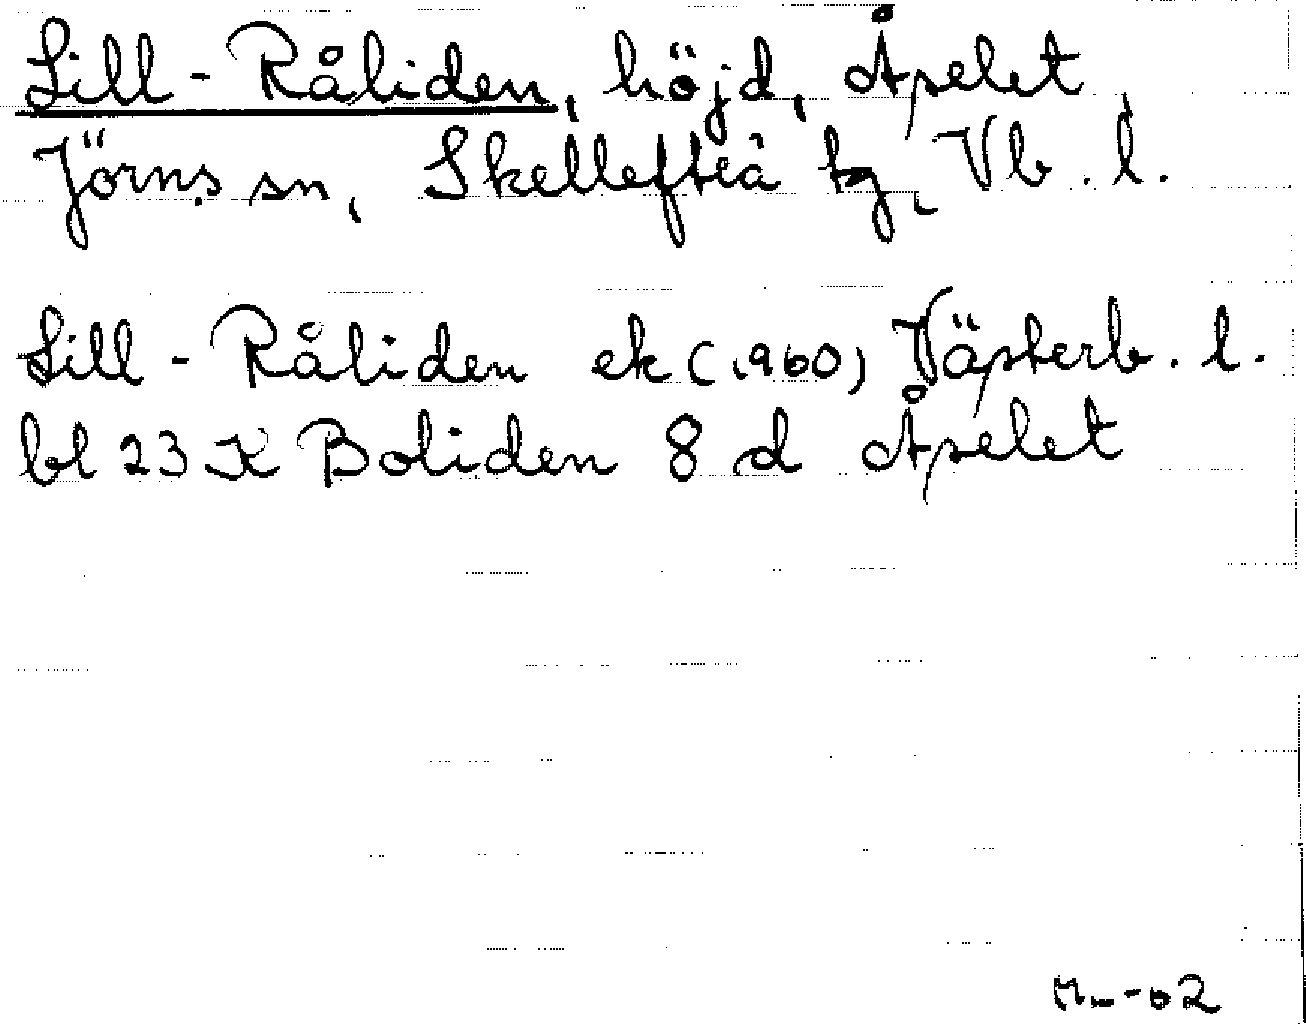 Lill-Råliden, höjd, Åselet
Jörns sn, Skellefteå tg, Vb. l.
Lill-Råliden ek (1960) Västerb. l.
bl 23 K Boliden 8 d Åselet
-02